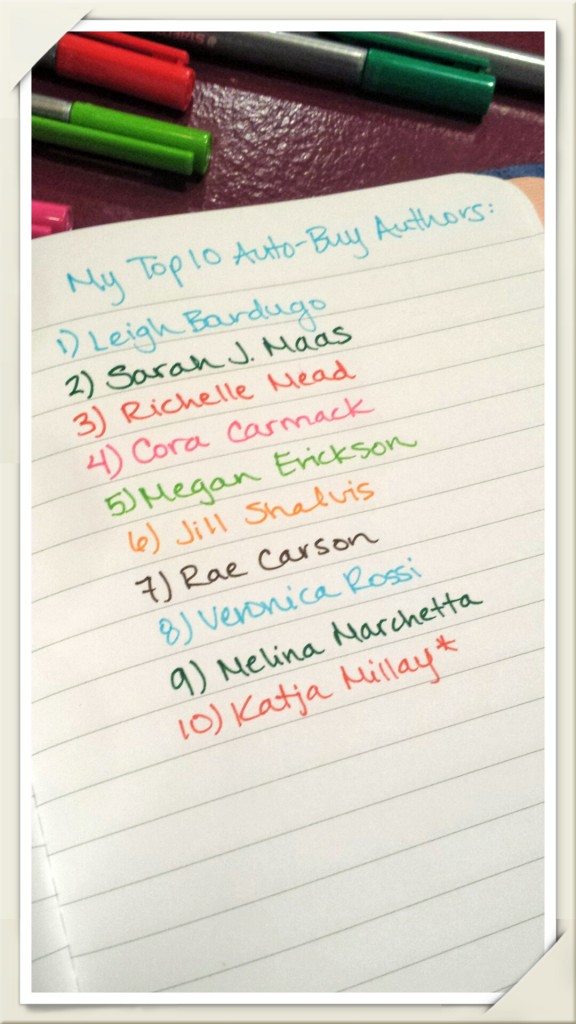 My Top 10 Auto-Buy Authors:
1) Leigh Bardugo
2) Sarah J. Maas
3) Richelle Mead
4) Cora Carmack
5) Megan Erickson
6) Jill Shalvis
7) Rae Carson
8) Veronica Rossi
9) Melina Marchetta
10) Katja Millay*